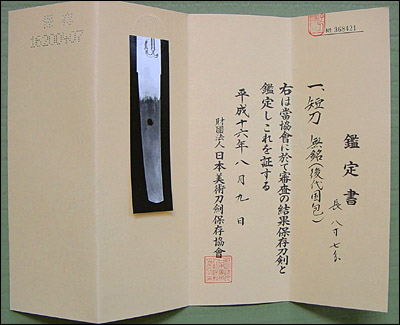 鑑定書
一、短刀 無銘(後代国包)
長 八寸七分
右は當協會に於て審査の結果保存刀剣と
鑑定しこれを証する
平成十六年八月九日
財團法人日本美術刀劍保存協會
№ 368421
16200407